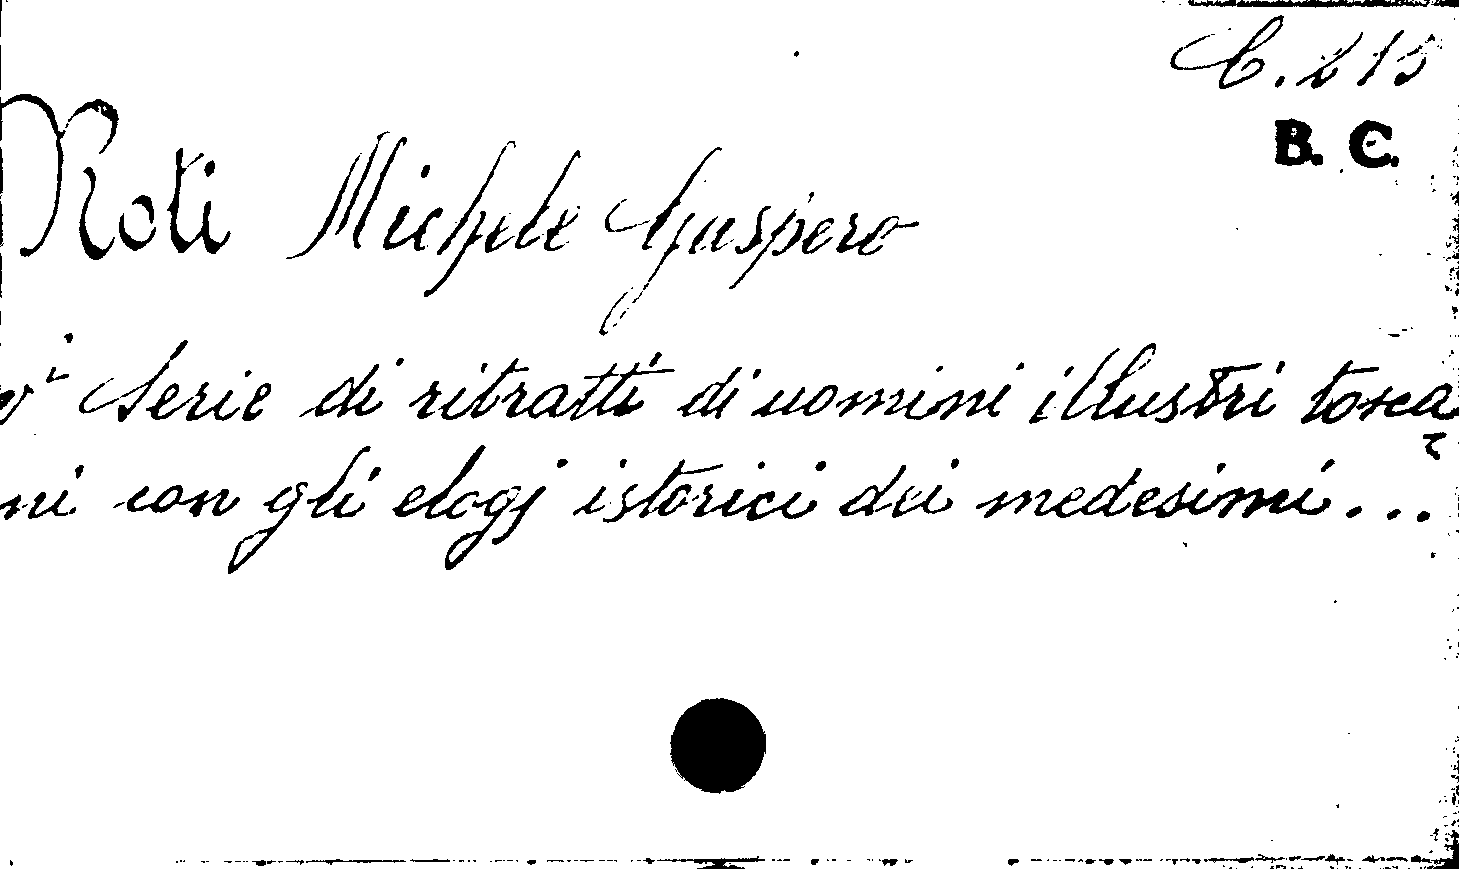 C. 215
B. C.
Roti Michele Gaspero
vⁱ Serie di ritratti di uomini illustri tosca
ni con gli elogj istorici dei medesimi...